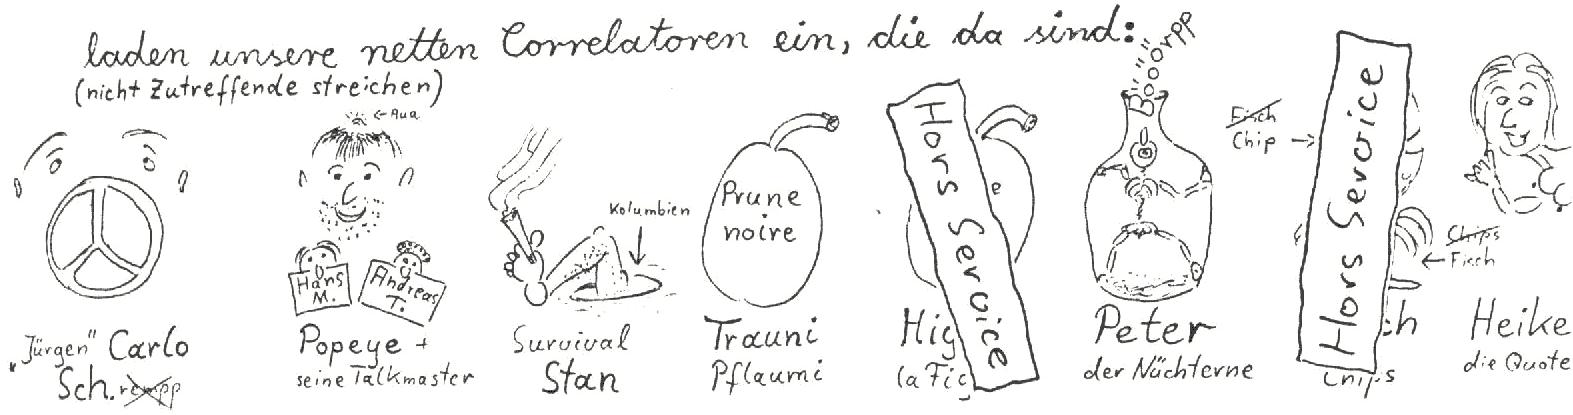 laden unsere netten Correlatoren ein, die da sind:
(nicht Zutreffende streichen)
← Aua
Hans
M.
Andreas
T.
Kolumbien
Prune
noire
Hors Service
e
Böööörpp
Fisch
Chip →
Hors Service
Chips
← Fisch
"Jürgen" Carlo
Sch.rempp
Popeye +
seine Talkmaster
Survival
Stan
Trauni
Pflaumi
Hig
(a Fig
Peter
der Nüchterne
ch
Chips
Heike
die Quote